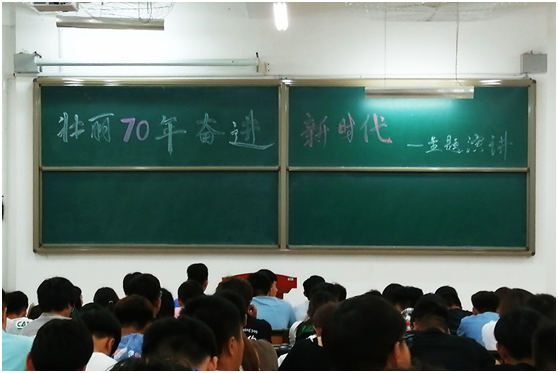 壮丽70年奋进 新时代 —主题演讲